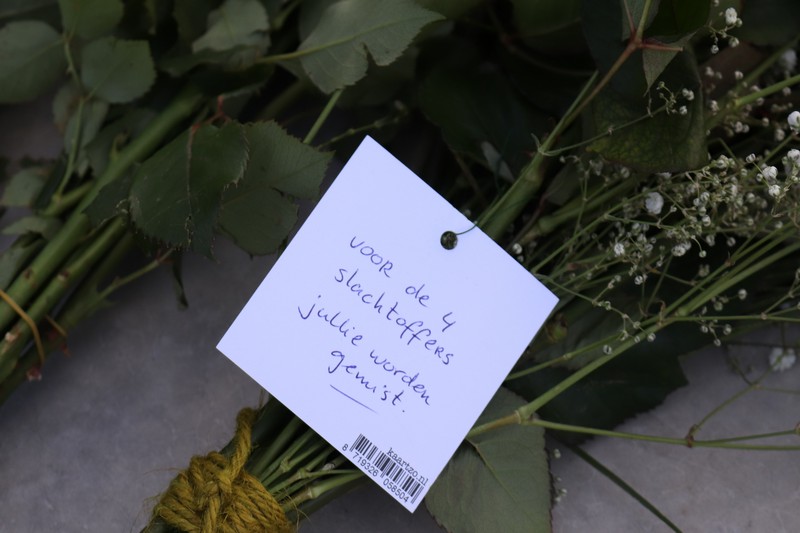 voor de 4
slachtoffers
jullie worden
gemist.
kaartzo.nl
8 719326 058504